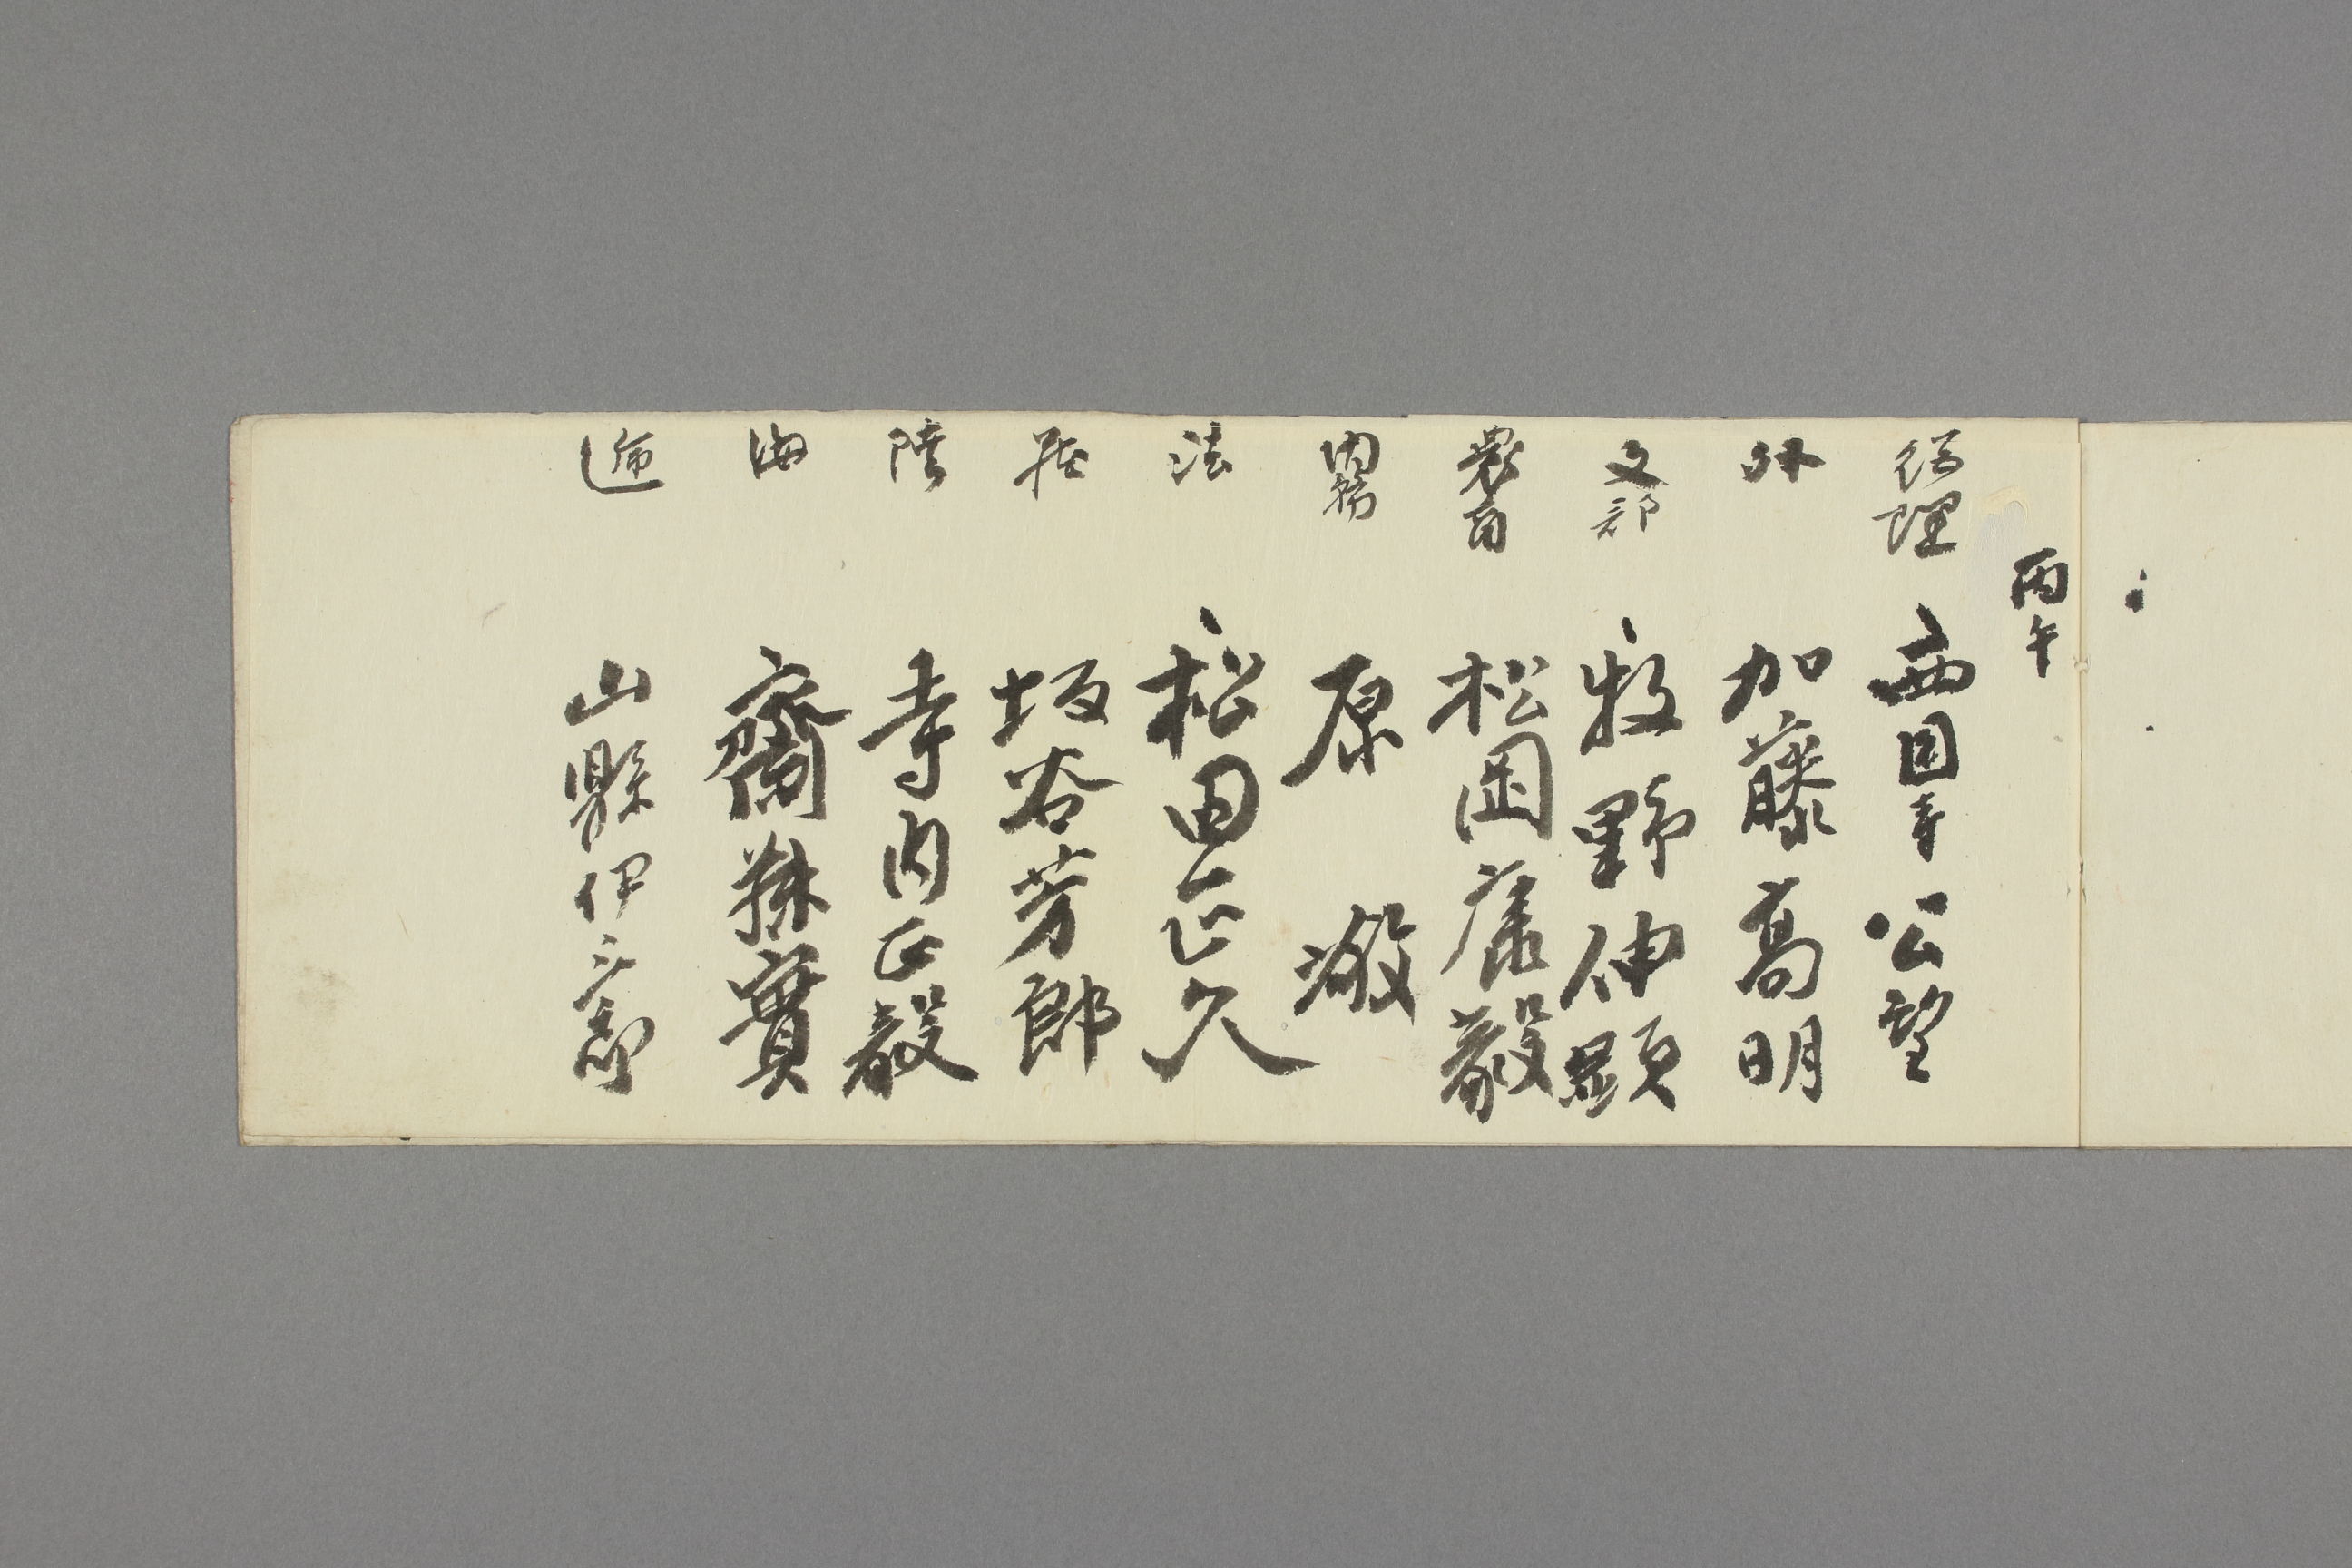 丙午
総理 西園寺公望
外 加藤高明
文部 牧野伸顕
農商 松岡康毅
内務 原 敬
法 松田正久
蔵 坂谷芳郎
陸 寺内正毅
海 齋藤實
逓 山縣伊三郎